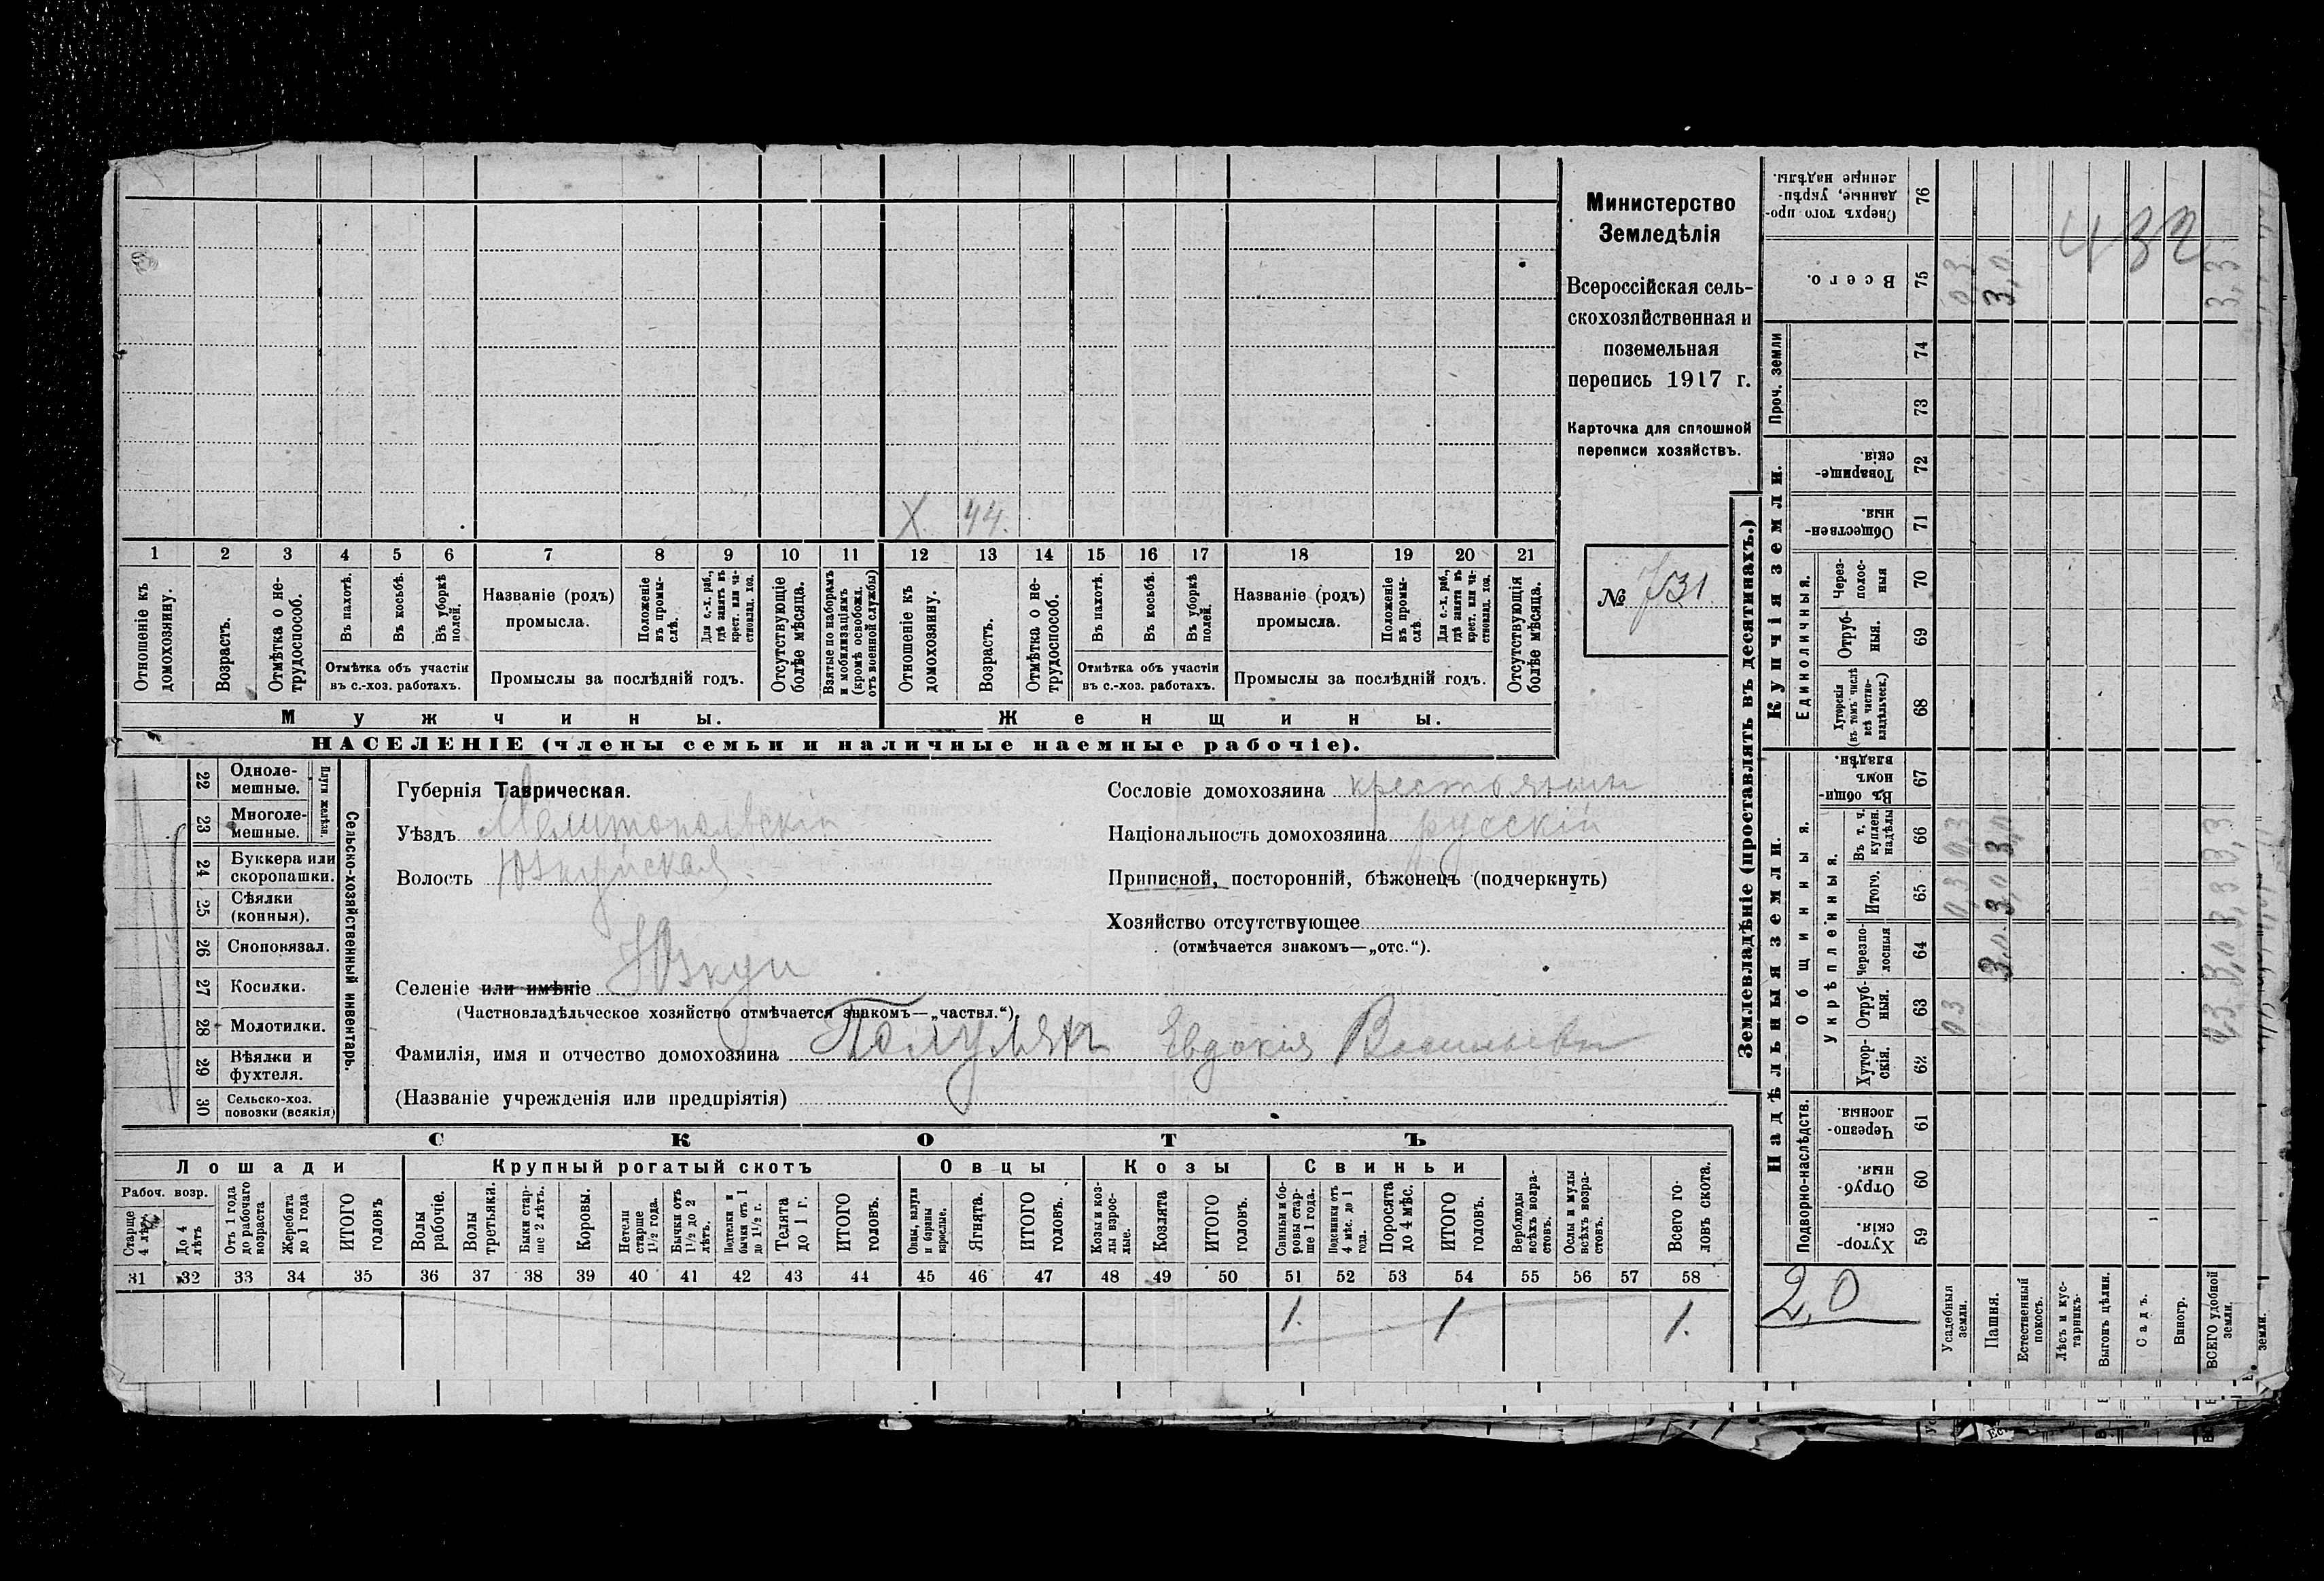 Министерство
Земледѣлія
Всероссійская сель-
скохозяйственная и
поземельная
перепись 1917 г.
Карточка для сплошной
переписи хозяйствъ.
№ 731
Х 44.
1 2 3 4 5 6 7 8 9 10 11 12 13 14 15 16 17 18 19 20 21
Отношеніе къ домохозяину.
Возрастъ.
Отмѣтка о не-трудоспособ.
Въ пахотѣ.
Въ косьбѣ.
Въ уборкѣ полей.
Отмѣтка объ участіи
въ с.-хоз. работахъ.
Названіе (родъ)
промысла.
Положеніе въ промы-слѣ.
Для с.-х. раб., гдѣ занятъ въ крест. или ча-стновлад. хоз.
Промыслы за послѣдній годъ.
Отсутствующіе болѣе мѣсяца.
Взятые по наборамъ и мобилизаціямъ (кромѣ освобожд. отъ военной службы)
Отношеніе къ домохозяину.
Возрастъ.
Отмѣтка о не-трудоспособ.
Въ пахотѣ.
Въ косьбѣ.
Въ уборкѣ полей.
Отмѣтка объ участіи
въ с.-хоз. работахъ.
Названіе (родъ)
промысла.
Положеніе въ промы-слѣ.
Для с.-х. раб., гдѣ занята въ крест. или ча-стновлад. хоз.
Промыслы за послѣдній годъ.
Отсутствующія болѣе мѣсяца.
Мужчины.
Женщины.
НАСЕЛЕНІЕ (члены семьи и наличные наемные рабочіе).
22 Одноле-мешные.
23 Многоле-мешные.
Плуги желѣзн.
24 Буккера или скоропашки.
25 Сѣялки (конныя).
26 Сноповязал.
27 Косилки.
28 Молотилки.
29 Вѣялки и фухтеля.
30 Сельско-хоз. повозки (всякія)
Сельско-хозяйственный инвентарь.
Губернія Таврическая.
Уѣздъ Мелитопольскій
Волость Юзкуйская
Селеніе или имѣніе Юзкуи
(Частновладѣльческое хозяйство отмѣчается знакомъ—„частвл.“).
Фамилія, имя и отчество домохозяина Полулях Евдокія Васильевн
(Названіе учрежденія или предпріятія)
Сословіе домохозяина крестьянин
Національность домохозяина русскій
Приписной, посторонній, бѣженецъ (подчеркнуть)
Хозяйство отсутствующее
(отмѣчается знакомъ—„отс.“).
СКОТЪ
Лошади
Крупный рогатый скотъ
Овцы
Козы
Свиньи
Рабоч. возр.
Старше 4 лѣтъ
До 4 лѣтъ
Отъ 1 года до рабочаго возраста
Жеребята до 1 года
ИТОГО головъ
Волы рабочіе.
Волы третьяки.
Быки стар-ше 2 лѣтъ.
Коровы.
Нетели старше 1½ года.
Бычки отъ 1½ до 2 лѣтъ.
Подтелки и бычки отъ 1 до 1½ г.
Телята до 1 г.
ИТОГО головъ.
Овцы, валухи и бараны взрослые.
Ягнята.
ИТОГО головъ.
Козы и коз-лы взрос-лые.
Козлята
ИТОГО головъ.
Свиньи и бо-ровы стар-ше 1 года.
Подсвинки отъ 4 мѣс. до 1 года.
Поросята до 4 мѣс.
ИТОГО головъ.
Верблюды всѣхъ возра-стовъ.
Ослы и мулы всѣхъ возра-стовъ.
Всего го-ловъ скота.
31 32 33 34 35 36 37 38 39 40 41 42 43 44 45 46 47 48 49 50 51 52 53 54 55 56 57 58
1. 1 1.
Землевладѣніе (проставлять въ десятинахъ.)
Надѣльныя земли.
Купчія земли.
Проч. земли
Подворно-наслѣдств.
Общинныя.
Укрѣпленныя.
Единоличныя.
Хутор-скія. 59
Отруб-ныя. 60
Черезпо-лосныя 61
Хутор-скія. 62
Отруб-ныя. 63
Черезпо-лосныя 64
Итого. 65
Въ т. ч. куплен. надѣлы 66
Въ общи-номъ владѣн. 67
Хуторскія (въ томъ числѣ всѣ частно-владѣльческ.) 68
Отруб-ныя. 69
Черезпо-лос-ныя 70
Обществен-ныя. 71
Товарище-скія. 72
73
74
Всего. 75
Сверхъ того про-данные, укрѣп-ленные надѣлы. 76
Усадебныя земли. 03 0,3 0,3 0,3
Пашня. 3,0 3,0 3,0 3,0
Естественный покосъ.
Лѣсъ и кус-тарникъ.
Выгонъ цѣлин.
Садъ.
Виногр.
ВСЕГО удобной земли. 0,3 3,0 3,3 3,3 3,3
432
2,0